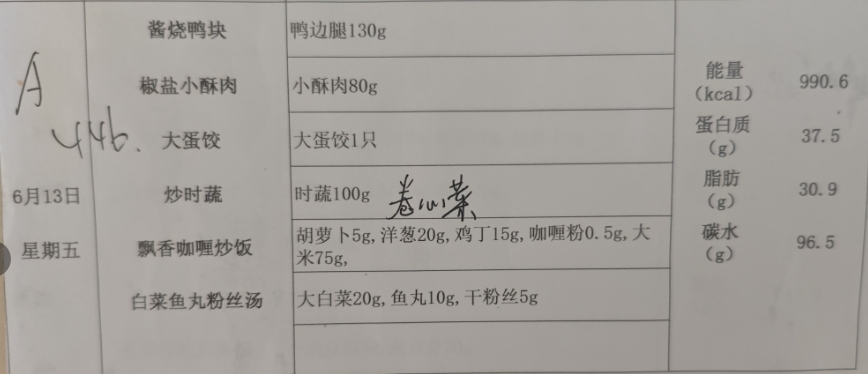 酱烧鸭块 鸭边腿130g
A 椒盐小酥肉 小酥肉80g 能量（kcal） 990.6
446. 大蛋饺 大蛋饺1只 蛋白质（g） 37.5
6月13日 炒时蔬 时蔬100g 卷心菜 脂肪（g） 30.9
星期五 飘香咖喱炒饭 胡萝卜5g,洋葱20g,鸡丁15g,咖喱粉0.5g,大 碳水（g） 96.5
米75g,
白菜鱼丸粉丝汤 大白菜20g,鱼丸10g,干粉丝5g